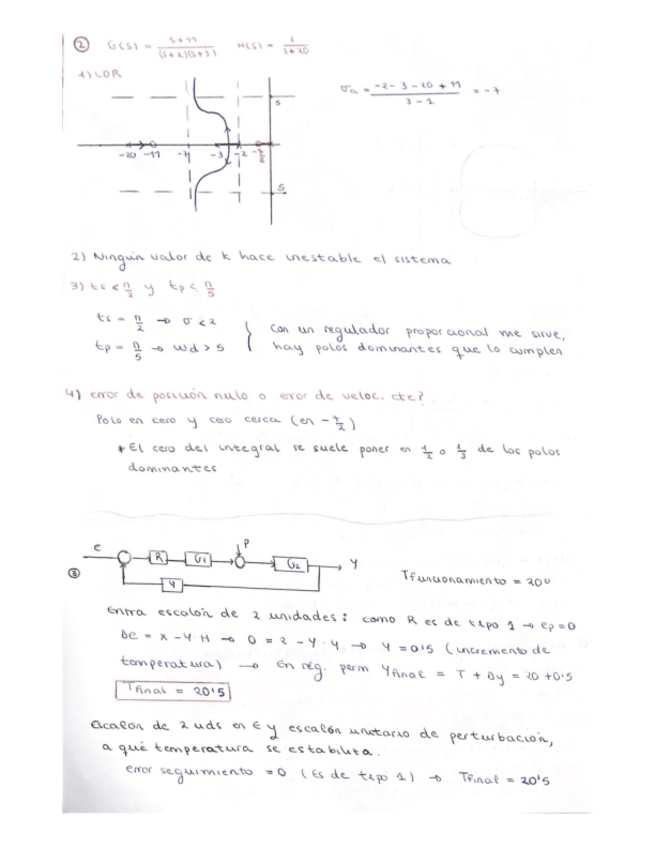 2 G(s) = s+11 / (s+2)(s+3) H(s) = 1 / s+20
1) LDR
σa = -2-3-20+11 / 3-1 = -7
5
-20 -11 -7 -3 -2
5
2) Ningún valor de k hace inestable el sistema
3) ts < π/2 y tp < π/5
ts = π/2 → σ < 2
tp = π/5 → wd > 5
Con un regulador proporcional me sirve,
hay polos dominantes que lo cumplen
4) error de posición nulo o error de veloc. cte?
Polo en cero y cero cerca (en
* El cero del integral se suele poner en 1/2 o 1/3 de los polos
dominantes
3 E R G1 P G2 Y
4
Tfuncionamiento = 20º
Entra escalón de 2 unidades: como R es de tipo 1 → ep=0
Δe = x - Y·H → 0 = 2 - Y·4 → Y = 0'5 (incremento de
temperatura) → En rég. perm Yfinal = T + Δy = 20 + 0'5
Tfinal = 20'5
Escalón de 2 uds en E y escalón unitario de perturbación,
a qué temperatura se estabiliza.
error seguimiento = 0 (Es de tipo 1) → Tfinal = 20'5